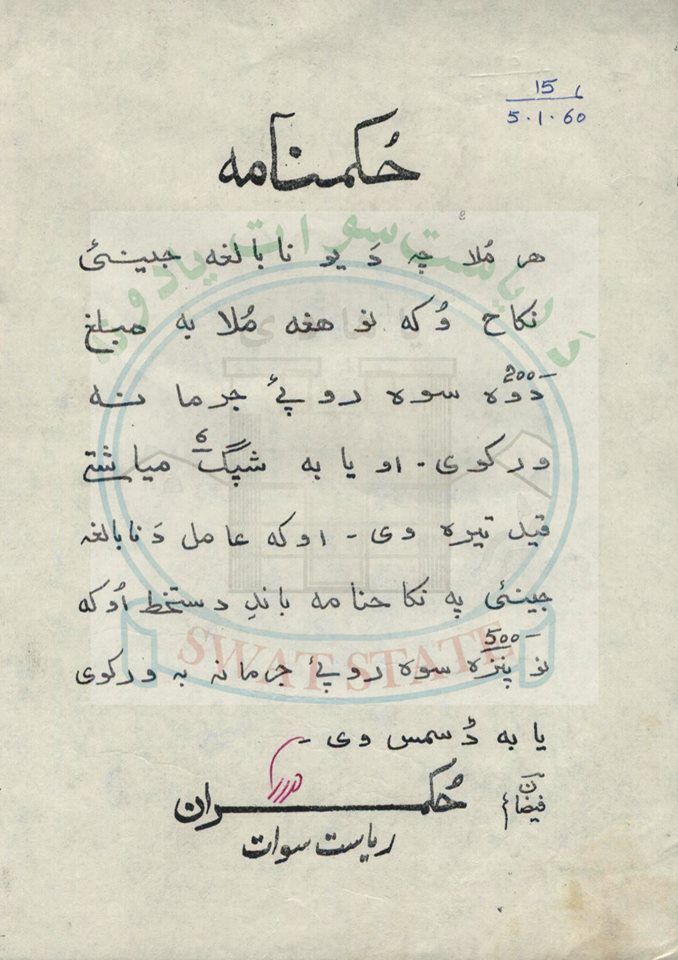 15
5.1.60
حُکمنامه
هر مُلا چہ دَ یو نابالغہ جینئ
نکاح وُکہ نو هغہ مُلا بہ مبلغ
200-
دَوہ سوہ روپئ جرمانہ
ورکوی۔ او یا بہ شپږ 6 میاشتے
قید تیرہ وی۔ اوکہ عامل دَ نابالغہ
جینئ پہ نکاحنامہ باندِ دستخط اُوکہ
500-
نو پنزہ سوہ روپئ جرمانہ بہ ورکوی
یا بہ ڈسمس وی۔
حُکمران
ریاست سوات
SWAT STATE